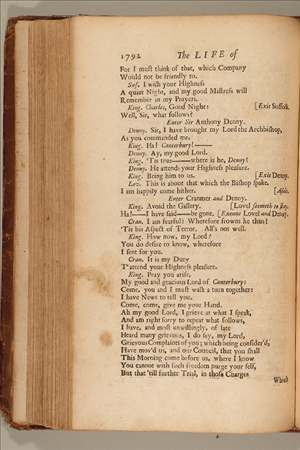 1792 The LIFE of
For I muſt think of that, which Company
Would not be friendly to.
Suf. I wiſh your Highneſs
A quiet Night, and my good Miſtreſs will
Remember in my Prayers.
King. Charles, Good Night: [Exit Suffolk.
Well, Sir, what follows?
Enter Sir Anthony Denny.
Denny. Sir, I have brought my Lord the Archbiſhop,
As you commanded me.
King. Ha! Canterbury! ——
Denny. Ay, my good Lord.
King. 'Tis true —— where is he, Denny?
Denny. He attends your Highneſs pleaſure.
King. Bring him to us. [Exit Denny.
Lov. This is about that which the Biſhop ſpake.
I am happily come hither. [Aſide.
Enter Cranmer and Denny.
King. Avoid the Gallery. [Lovel ſeemeth to ſtay.
Ha! —— I have ſaid —— be gone. [Exeunt Lovel and Denny.
Cran. I am fearful: Wherefore frowns he thus?
'Tis his Aſpect of Terror. All's not well.
King. How now, my Lord?
You do deſire to know, wherefore
I ſent for you.
Cran. It is my Duty
T'attend your Highneſs pleaſure.
King. Pray you ariſe,
My good and gracious Lord of Canterbury:
Come, you and I muſt walk a turn together:
I have News to tell you.
Come, come, give me your Hand.
Ah my good Lord, I grieve at what I ſpeak,
And am right ſorry to repeat what follows,
I have, and moſt unwillingly, of late
Heard many grievous, I do ſay, my Lord,
Grievous Complaints of you; which being conſider'd,
Have mov'd us, and our Council, that you ſhall
This Morning come before us, where I know
You cannot with ſuch freedom purge your ſelf,
But that 'till further Trial, in thoſe Charges
Which